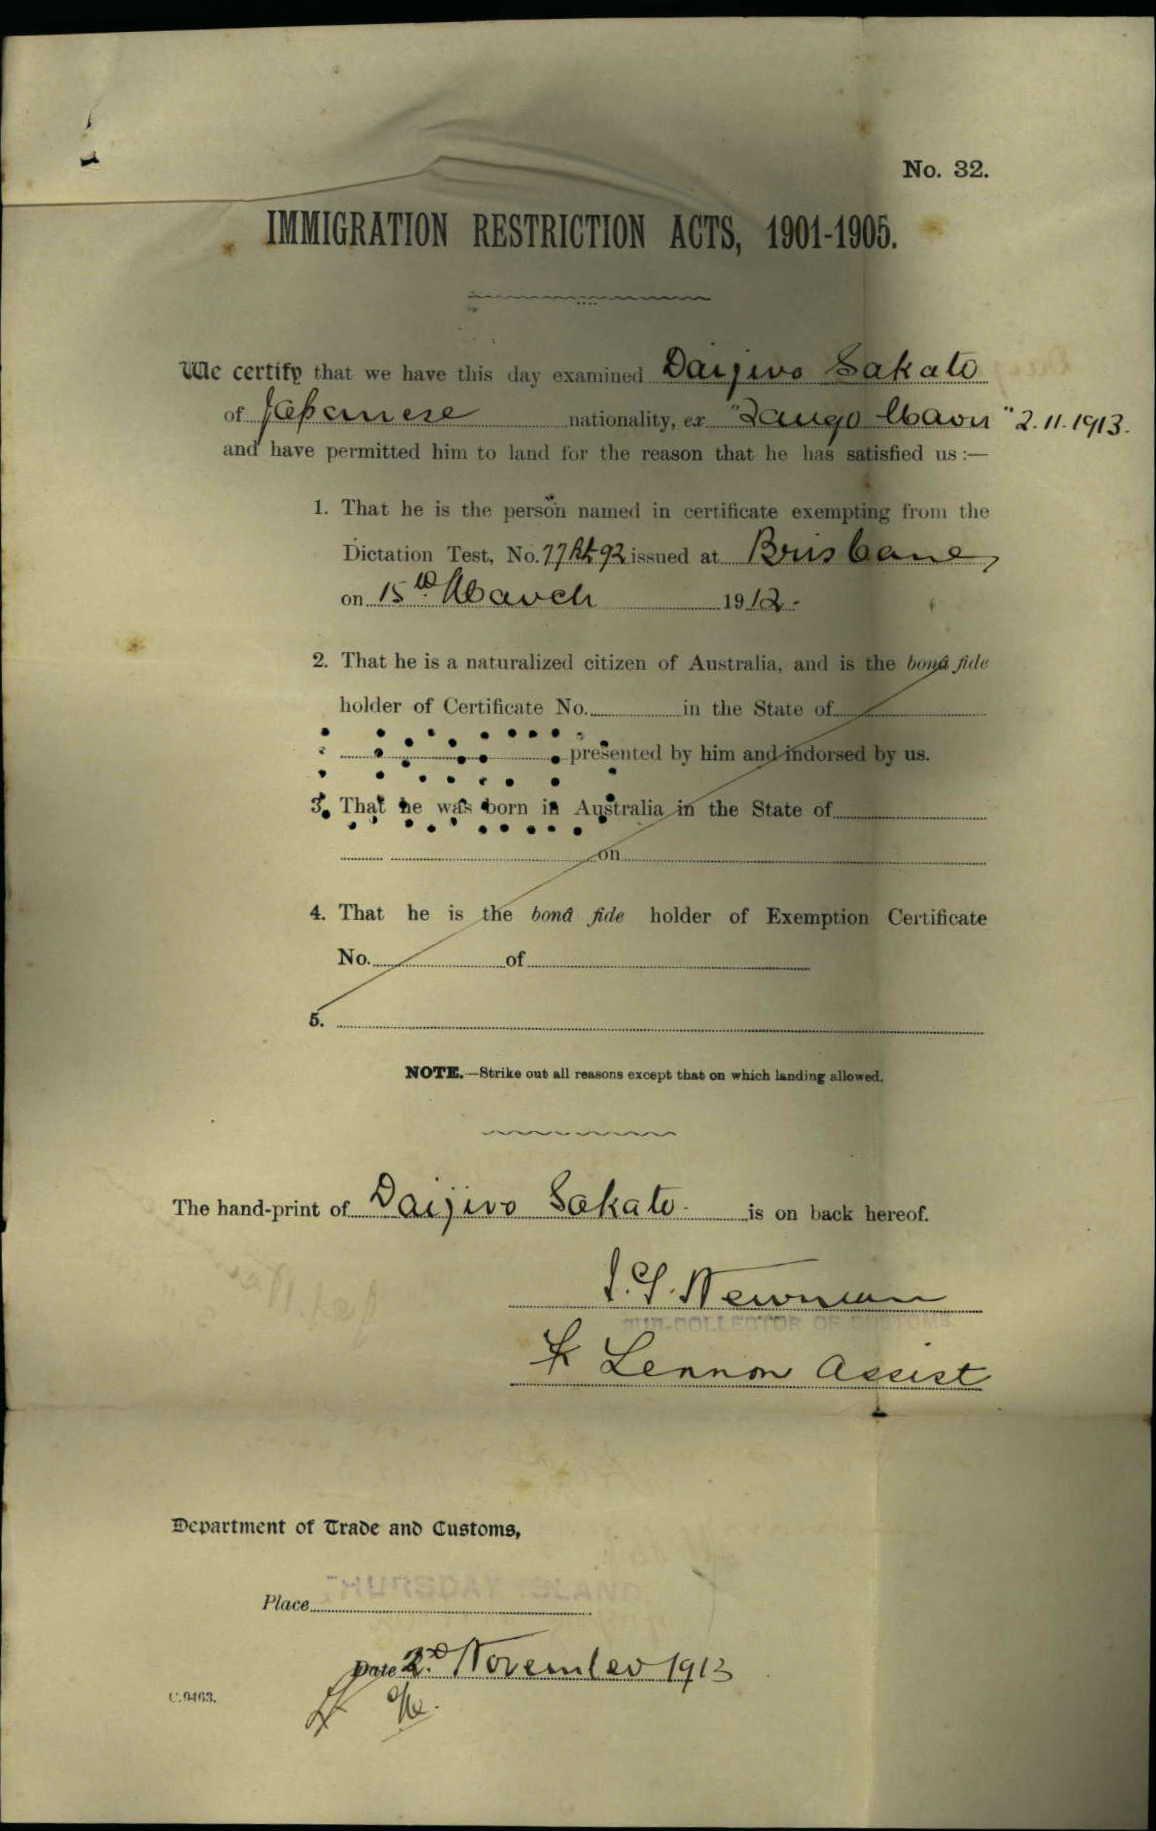 No. 32.
IMMIGRATION RESTRICTION ACTS, 1901-1905.
We certify that we have this day examined Daijiro Sakato
of Japanese nationality, ex "Tango Maru" 2.11.1913.
and have permitted him to land for the reason that he has satisfied us :—
1. That he is the person named in certificate exempting from the
Dictation Test, No. 92 issued at Brisbane,
on 15th March 1912.
2. That he is a naturalized citizen of Australia, and is the bonâ fide
holder of Certificate No. in the State of
presented by him and indorsed by us.
3. That he was born in Australia in the State of
on
4. That he is the bonâ fide holder of Exemption Certificate
No. of
5.
NOTE.—Strike out all reasons except that on which landing allowed.
The hand-print of Daijiro Sakato. is on back hereof.
Newman
SUB-COLLECTOR OF CUSTOMS
Lennon Assist
Department of Trade and Customs,
THURSDAY ISLAND
Place
Date 2nd November 1913
C.9463.